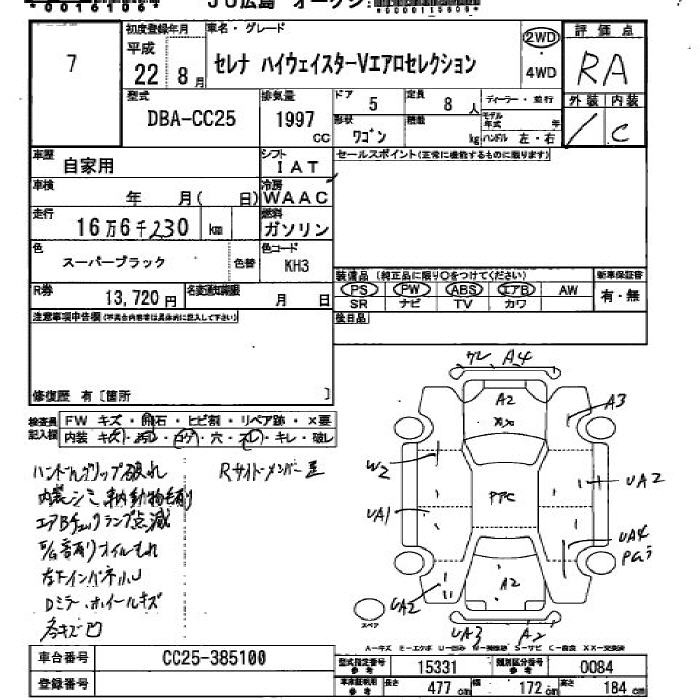 JU広島 オークション
7
初度登録年月
平成
22年8月
車名・グレード
セレナ ハイウェイスターVエアロセレクション
2WD
・
4WD
評価点
RA
外装 内装
/ C
型式
DBA-CC25
排気量
1997
CC
ドア
5
定員
8人
ディーラー・並行
形状
ワゴン
積載
kg
モデル年式
年
ハンドル 左・右
車歴
自家用
シフト
IAT
セールスポイント(正常に機能するものに限ります)
車検
年 月( 日)
冷房
WAAC
走行
16万6千230 km
燃料
ガソリン
色
スーパーブラック
色替
色コード
KH3
装備品 (純正品に限り○をつけてください)
新車保証書
PS PW ABS エアB AW
有・無
SR ナビ TV カワ
R券
13,720円
名変通知期限
月 日
後日品
注意事項申告欄(不具合内容等は具体的に記入して下さい)
修復歴 有〔箇所 〕
検査員記入欄
FW キズ・飛石・ヒビ割・リペア跡・X要
内装 キズ・汚れ・コゲ・穴・スレ・キレ・破レ
ハンドルグリップ破れ
内装シミ 車内動物毛有
エアBチェックランプ点滅
オイルもれ
左下インパネ小U
Dミラー・ホイールキズ
各キズ凹
Rサイドメンバー
ワレ A4
A2
XX
A3
W2
UA1
PPC
UA2
UA4
A2
UA2
UA3 A2
スペア
A-キズ E-エクボ U-凹み W-補修跡 S-サビ C-腐食 XX-交換済
車台番号
CC25-385100
登録番号
型式指定番号
参考
15331
類別区分番号
参考
0084
車庫証明用
参考
長さ
477cm
幅
172cm
高さ
184cm